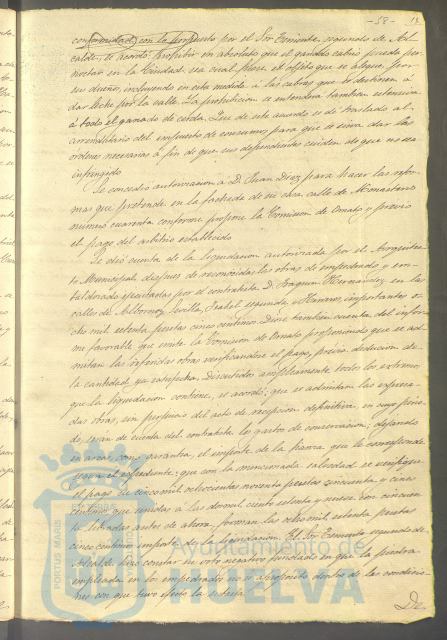 - 58 -
conformidad con lo propuesto por el Sor Teniente segundo de Al-
calde, se acordó: prohibir en absoluto que el ganado cabrío pueda per-
noctar en la Ciudad, sea cual fuere el objeto que se alegue, por
sus dueños, incluyendo en esta medida á las cabras que se destinen á
dar leche por la calle. La prohibición se entenderá también estensiva
á todo el ganado de cerda. Que de este acuerdo se dé traslado al
arrendatario del impuesto de consumos, para que se sirva dar las
órdenes necesarias á fin de que sus dependientes cuiden de que no sea
infringido
Se concedió autorización á D. Juan Diaz para hacer las refor-
mas que pretende en la fachada de su casa calle de Monasterio
número cuarenta conforme propone la Comisión de Ornato y previo
el pago del arbitrio establecido
Se dió cuenta de la liquidación autorizada por el Arquitec-
to Municipal, después de reconocidas las obras de empedrado y em-
baldosado ejecutadas por el contratista D. Joaquin Hernandez en las
calles de Albornoz, Sevilla, Isabel segunda y importantes o-
cho mil setenta pesetas cinco centimos. Dióse también cuenta del infor-
me favorable que emite la Comisión de Ornato proponiendo que se ad-
mitan las referidas obras verificándose el pago, previa deducción de
la cantidad ya satisfecha. Discutidos ampliamente todos los estremos
que la liquidación contiene, se acordó: que se admitan las espresa-
das obras, sin perjuicio del acto de recepción definitiva, en cuyo perio-
do, serán de cuenta del contratista los gastos de conservación; dejando
en arcas, como garantía, el importe de la fianza que le corresponde
segun el espediente; que con la mencionada salvedad se verifique
el pago de cinco mil ochocientas noventa pesetas cincuenta y cinco
centimos que unidas á las dos mil ciento setenta y nueve con cincuen-
ta libradas antes de ahora, forman las ocho mil setenta pesetas
cinco centimos importe de la liquidación. El Sor Teniente segundo de
Alcalde hizo constar su voto negativo fundado en que la piedra
empleada en los empedrados no es apropósito dentro de las condicio-
nes con que tuvo efecto la subasta.
De
PORTUS MARIS
Ayuntamiento de
HUELVA